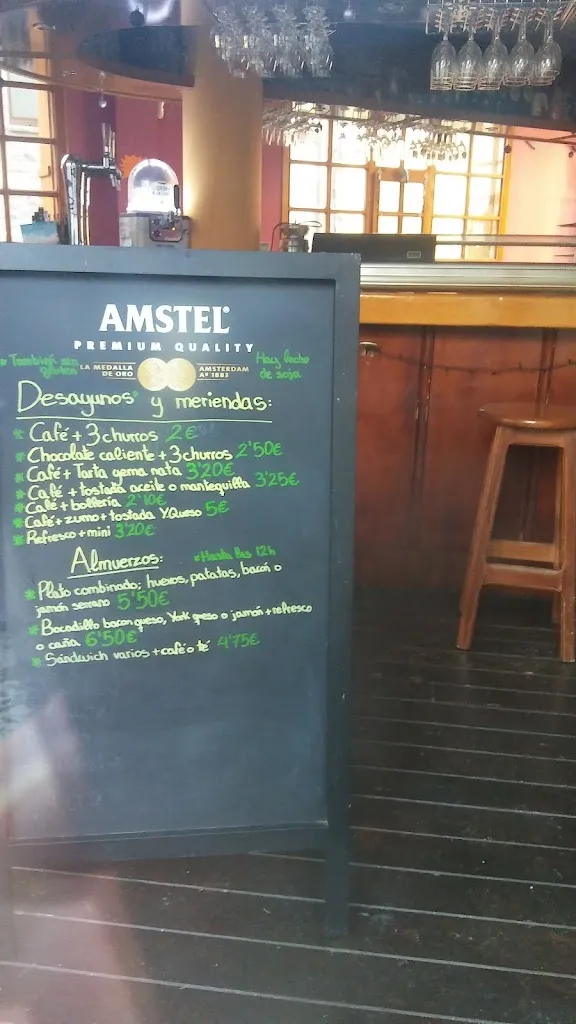 AMSTEL
PREMIUM QUALITY
* También sin gluten
LA MEDALLA DE ORO
AMSTERDAM Aº 1883
Hay leche de soja
Desayunos y meriendas:
* Café + 3 churros 2€
* Chocolate caliente + 3 churros 2'50€
* Café + Tarta yema nata 3'20€
* Café + tostada aceite o mantequilla 3'25€
* Café + bollería 2'10€
* Café + zumo + tostada Y.Queso 5€
* Refresco + mini 3'20€
Almuerzos: * Hasta las 12h
* Plato combinado; huevos, patatas, bacón o
jamón serrano 5'50€
* Bocadillo bacon queso, York queso o jamón + refresco
o caña 6'50€
* Sándwich varios + café o té 4'75€